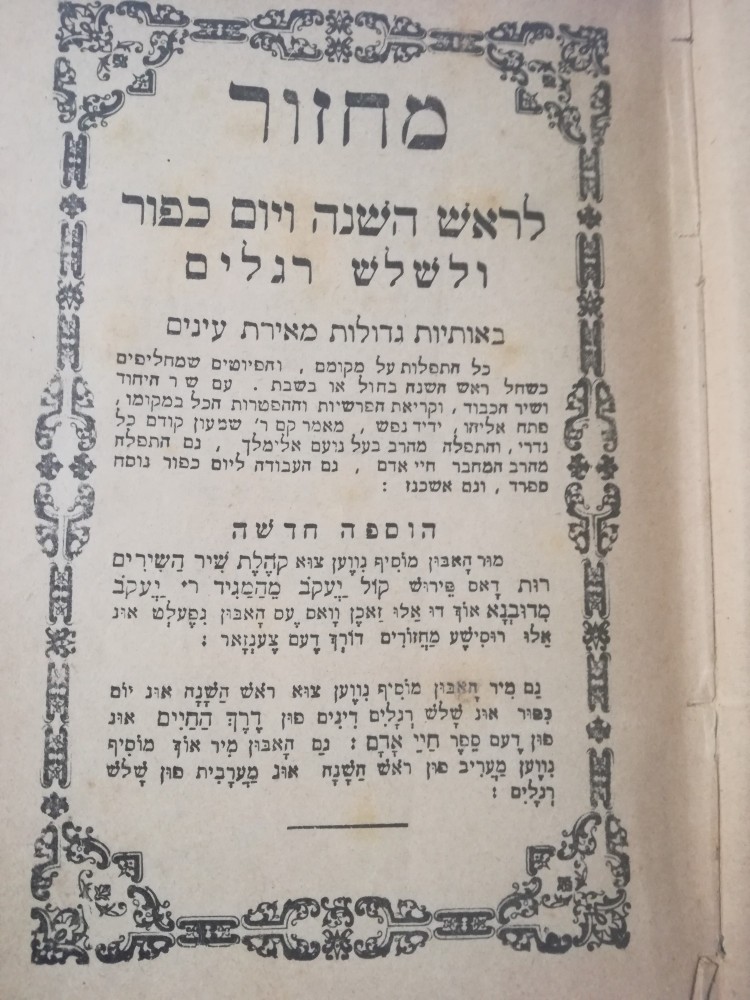 מחזור
לראש השנה ויום כפור
ולשלש רגלים
באותיות גדולות מאירת עינים
כל התפלות על מקומם , והפיוטים שמחליפים
כשחל ראש השנה בחול או בשבת . עם ש ר היחוד
ושיר הכבוד , וקריאת הפרשיות וההפטרות הכל במקומו,
פתח אליהו, ידיד נפש , מאמר קם ר' שמעון קודם כל
נדרי, והתפלה מהרב בעל נועם אלימלך , גם התפלה
מהרב המחבר חיי אדם , גם העבודה ליום כפור נוסח
ספרד , וגם אשכנז :
הוספה חדשה
מיר האבון מוסיף גיווען צוא קהלת שיר השירים
רות דאס פירוש קול יעקב מהמגיד ר' יעקב
מדובנא אוך דו אלו זאכן וואס עס האבון גיפעלט אונ
אלו רוסישע מחזורים דורך דעם צענזאר :
גם מיר האבון מוסיף גיווען צוא ראש השנה אונ יום
כפור אונ שלש רגלים דינים פון דרך החיים אונ
פון דעם ספר חיי אדם : גם האבון מיר אוך מוסיף
גיווען מעריב פון ראש השנה אונ מערבית פון שלש
רגלים :